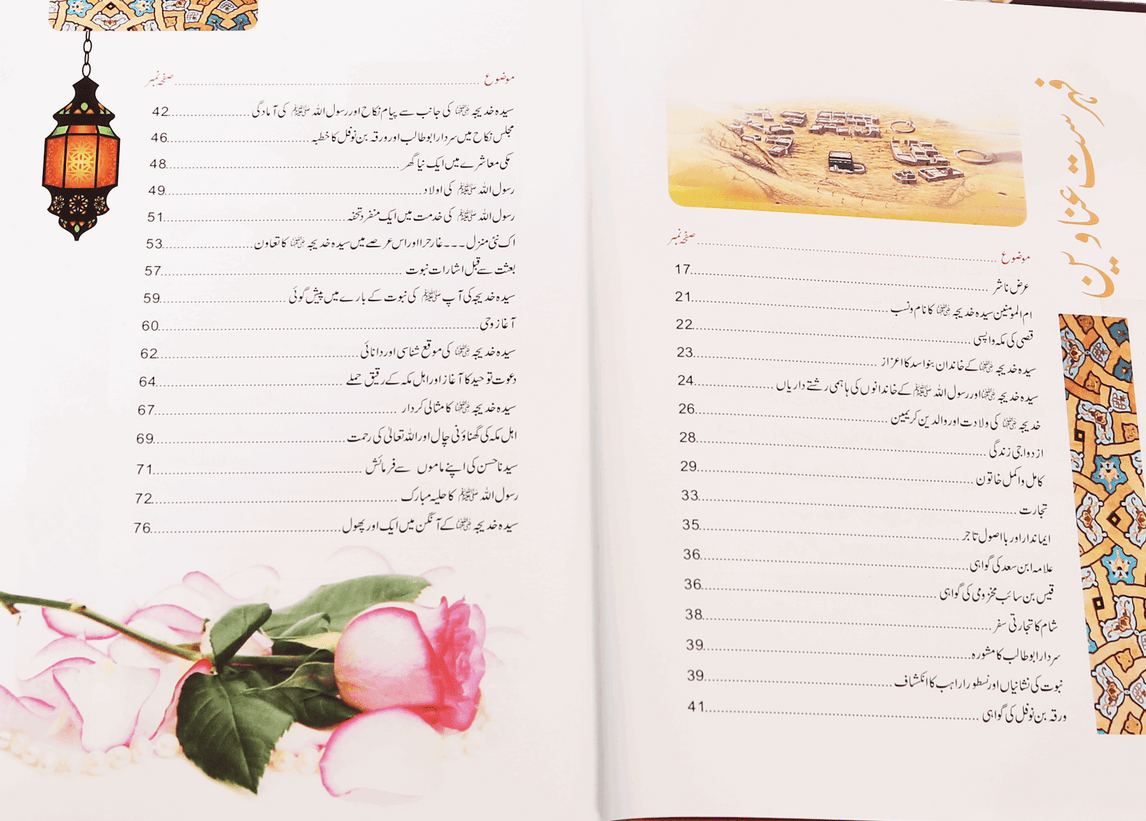 فہرست عناوین
موضوع ........ صفحہ نمبر
عرض ناشر ........ 17
ام المومنین سیدہ خدیجہ رضی اللہ عنہا کا نام و نسب ........ 21
قصی کی مکہ واپسی ........ 22
سیدہ خدیجہ رضی اللہ عنہا کے خاندان بنو اسد کا اعزاز ........ 23
سیدہ خدیجہ رضی اللہ عنہا اور رسول اللہ ﷺ کے خاندانوں کی باہمی رشتے داریاں ........ 24
خدیجہ رضی اللہ عنہا کی ولادت اور والدین کریمین ........ 26
ازدواجی زندگی ........ 28
کامل و اکمل خاتون ........ 29
تجارت ........ 33
ایماندار اور بااصول تاجر ........ 35
علامہ ابن سعد کی گواہی ........ 36
قیس بن سائب مخزومی کی گواہی ........ 36
شام کا تجارتی سفر ........ 38
سردار ابو طالب کا مشورہ ........ 39
نبوت کی نشانیاں اور نسطورا راہب کا انکشاف ........ 39
ورقہ بن نوفل کی گواہی ........ 41
موضوع ........ صفحہ نمبر
سیدہ خدیجہ رضی اللہ عنہا کی جانب سے پیام نکاح اور رسول اللہ ﷺ کی آمادگی ........ 42
مجلس نکاح میں سردار ابو طالب اور ورقہ بن نوفل کا خطبہ ........ 46
مکی معاشرے میں ایک نیا گھر ........ 48
رسول اللہ ﷺ کی اولاد ........ 49
رسول اللہ ﷺ کی خدمت میں ایک منفرد تحفہ ........ 51
اک نئی منزل ۔۔۔ غار حرا اور اس عرصے میں سیدہ خدیجہ رضی اللہ عنہا کا تعاون ........ 53
بعثت سے قبل اشارات نبوت ........ 57
سیدہ خدیجہ کی آپ ﷺ کی نبوت کے بارے میں پیش گوئی ........ 59
آغاز وحی ........ 60
سیدہ خدیجہ رضی اللہ عنہا کی موقع شناسی اور دانائی ........ 62
دعوت توحید کا آغاز اور اہل مکہ کے رقیق حملے ........ 64
سیدہ خدیجہ رضی اللہ عنہا کا مثالی کردار ........ 67
اہل مکہ کی گھناؤنی چال اور اللہ تعالیٰ کی رحمت ........ 69
سیدنا حسن کی اپنے ماموں سے فرمائش ........ 71
رسول اللہ ﷺ کا حلیہ مبارک ........ 72
سیدہ خدیجہ رضی اللہ عنہا کے آنگن میں ایک اور پھول ........ 76